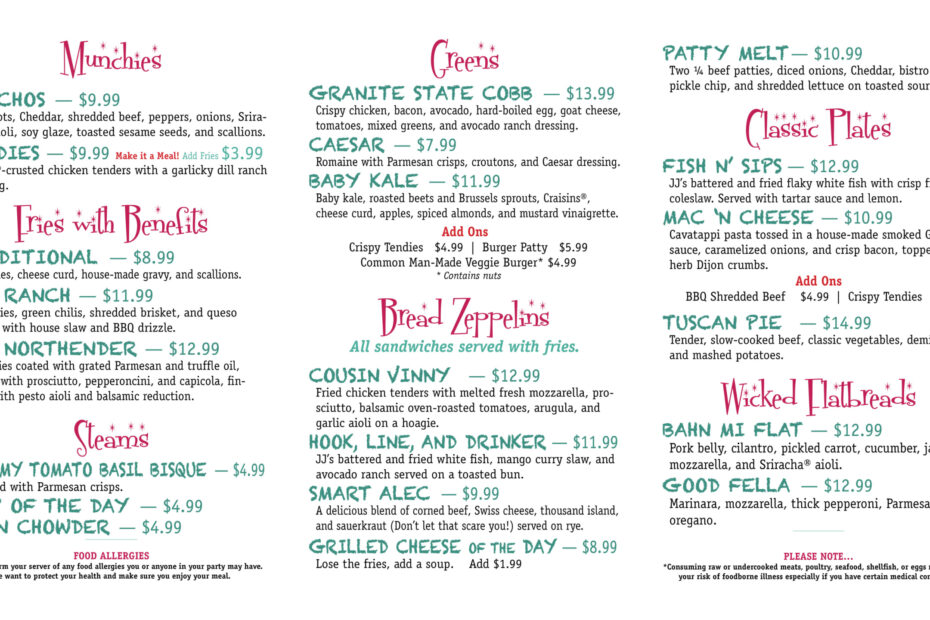 Munchies
CHOS — $9.99
ots, Cheddar, shredded beef, peppers, onions, Srira-
oli, soy glaze, toasted sesame seeds, and scallions.
DIES — $9.99 Make it a Meal! Add Fries $3.99
-crusted chicken tenders with a garlicky dill ranch
g.
Fries with Benefits
DITIONAL — $8.99
ies, cheese curd, house-made gravy, and scallions.
RANCH — $11.99
ies, green chilis, shredded brisket, and queso
with house slaw and BBQ drizzle.
NORTHENDER — $12.99
ies coated with grated Parmesan and truffle oil,
with prosciutto, pepperoncini, and capicola, fin-
ith pesto aioli and balsamic reduction.
Steams
MY TOMATO BASIL BISQUE — $4.99
d with Parmesan crisps.
OF THE DAY — $4.99
N CHOWDER — $4.99
FOOD ALLERGIES
rm your server of any food allergies you or anyone in your party may have.
e want to protect your health and make sure you enjoy your meal.
Greens
GRANITE STATE COBB — $13.99
Crispy chicken, bacon, avocado, hard-boiled egg, goat cheese,
tomatoes, mixed greens, and avocado ranch dressing.
CAESAR — $7.99
Romaine with Parmesan crisps, croutons, and Caesar dressing.
BABY KALE — $11.99
Baby kale, roasted beets and Brussels sprouts, Craisins®,
cheese curd, apples, spiced almonds, and mustard vinaigrette.
Add Ons
Crispy Tendies $4.99 | Burger Patty $5.99
Common Man-Made Veggie Burger* $4.99
* Contains nuts
Bread Zeppelins
All sandwiches served with fries.
COUSIN VINNY — $12.99
Fried chicken tenders with melted fresh mozzarella, pro-
sciutto, balsamic oven-roasted tomatoes, arugula, and
garlic aioli on a hoagie.
HOOK, LINE, AND DRINKER — $11.99
JJ’s battered and fried white fish, mango curry slaw, and
avocado ranch served on a toasted bun.
SMART ALEC — $9.99
A delicious blend of corned beef, Swiss cheese, thousand island,
and sauerkraut (Don’t let that scare you!) served on rye.
GRILLED CHEESE OF THE DAY — $8.99
Lose the fries, add a soup. Add $1.99
PATTY MELT — $10.99
Two ¼ beef patties, diced onions, Cheddar, bistro
pickle chip, and shredded lettuce on toasted sour
Classic Plates
FISH N’ SIPS — $12.99
JJ’s battered and fried flaky white fish with crisp f
coleslaw. Served with tartar sauce and lemon.
MAC ‘N CHEESE — $10.99
Cavatappi pasta tossed in a house-made smoked G
sauce, caramelized onions, and crisp bacon, toppe
herb Dijon crumbs.
Add Ons
BBQ Shredded Beef $4.99 | Crispy Tendies
TUSCAN PIE — $14.99
Tender, slow-cooked beef, classic vegetables, demi
and mashed potatoes.
Wicked Flatbreads
BAHN MI FLAT — $12.99
Pork belly, cilantro, pickled carrot, cucumber, ja
mozzarella, and Sriracha® aioli.
GOOD FELLA — $12.99
Marinara, mozzarella, thick pepperoni, Parmesa
oregano.
PLEASE NOTE...
*Consuming raw or undercooked meats, poultry, seafood, shellfish, or eggs
your risk of foodborne illness especially if you have certain medical con